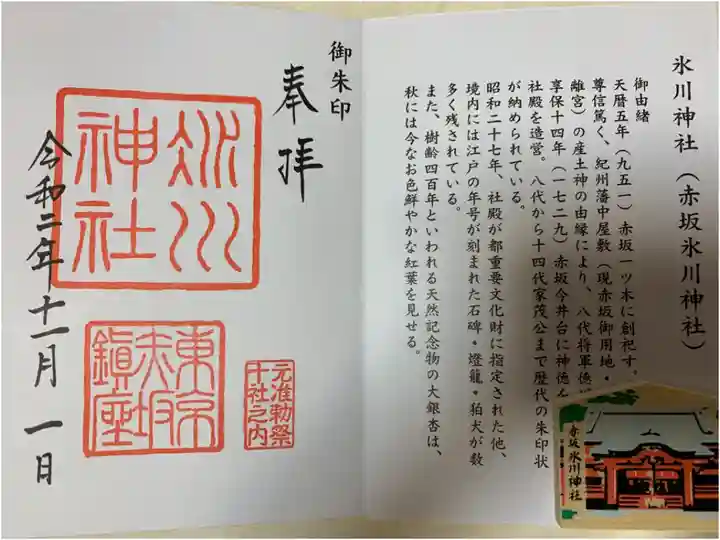 氷川神社（赤坂氷川神社）
御由緒
天暦五年（九五一）赤坂一ツ木に創祀す。
尊信篤く、紀州藩中屋敷（現赤坂御用地・
離宮）の産土神の由縁により、八代将軍
享保十四年（一七二九）赤坂今井台に神徳
社殿を造営。八代から十四代家茂公まで歴代の朱印状
が納められている。
昭和二十七年、社殿が都重要文化財に指定された他、
境内には江戸の年号が刻まれた石碑・燈籠・狛犬が数
多く残されている。
また、樹齢四百年といわれる天然記念物の大銀杏は、
秋には今なお色鮮やかな紅葉を見せる。
赤坂氷川神社
御朱印
奉拝
氷川
神社
東京
赤坂
鎮座
元准勅祭
十社之内
令和二年十一月一日